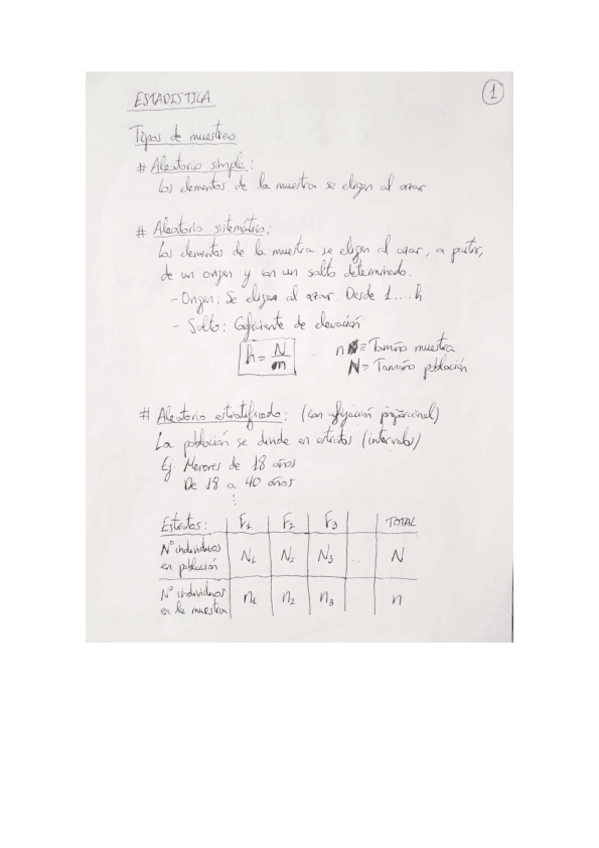 1
ESTADISTICA
Tipos de muestreo
# Aleatorio simple:
Los elementos de la muestra se eligen al azar
# Aleatorio sistemático:
Los elementos de la muestra se eligen al azar, a partir,
de un origen y con un salto determinado.
- Origen: Se elige al azar. Desde 1....h
- Salto: Coeficiente de elevación
h = N/n
n = Tamaño muestra
N = Tamaño población
# Aleatorio estratificado: (con afijación proporcional)
La población se divide en estratos (intervalos)
Ej. Menores de 18 años
De 18 a 40 años
⋮
Estratos: E₁ E₂ E₃ TOTAL
Nº individuos en población N₁ N₂ N₃ .. N
Nº individuos en la muestra n₁ n₂ n₃ n